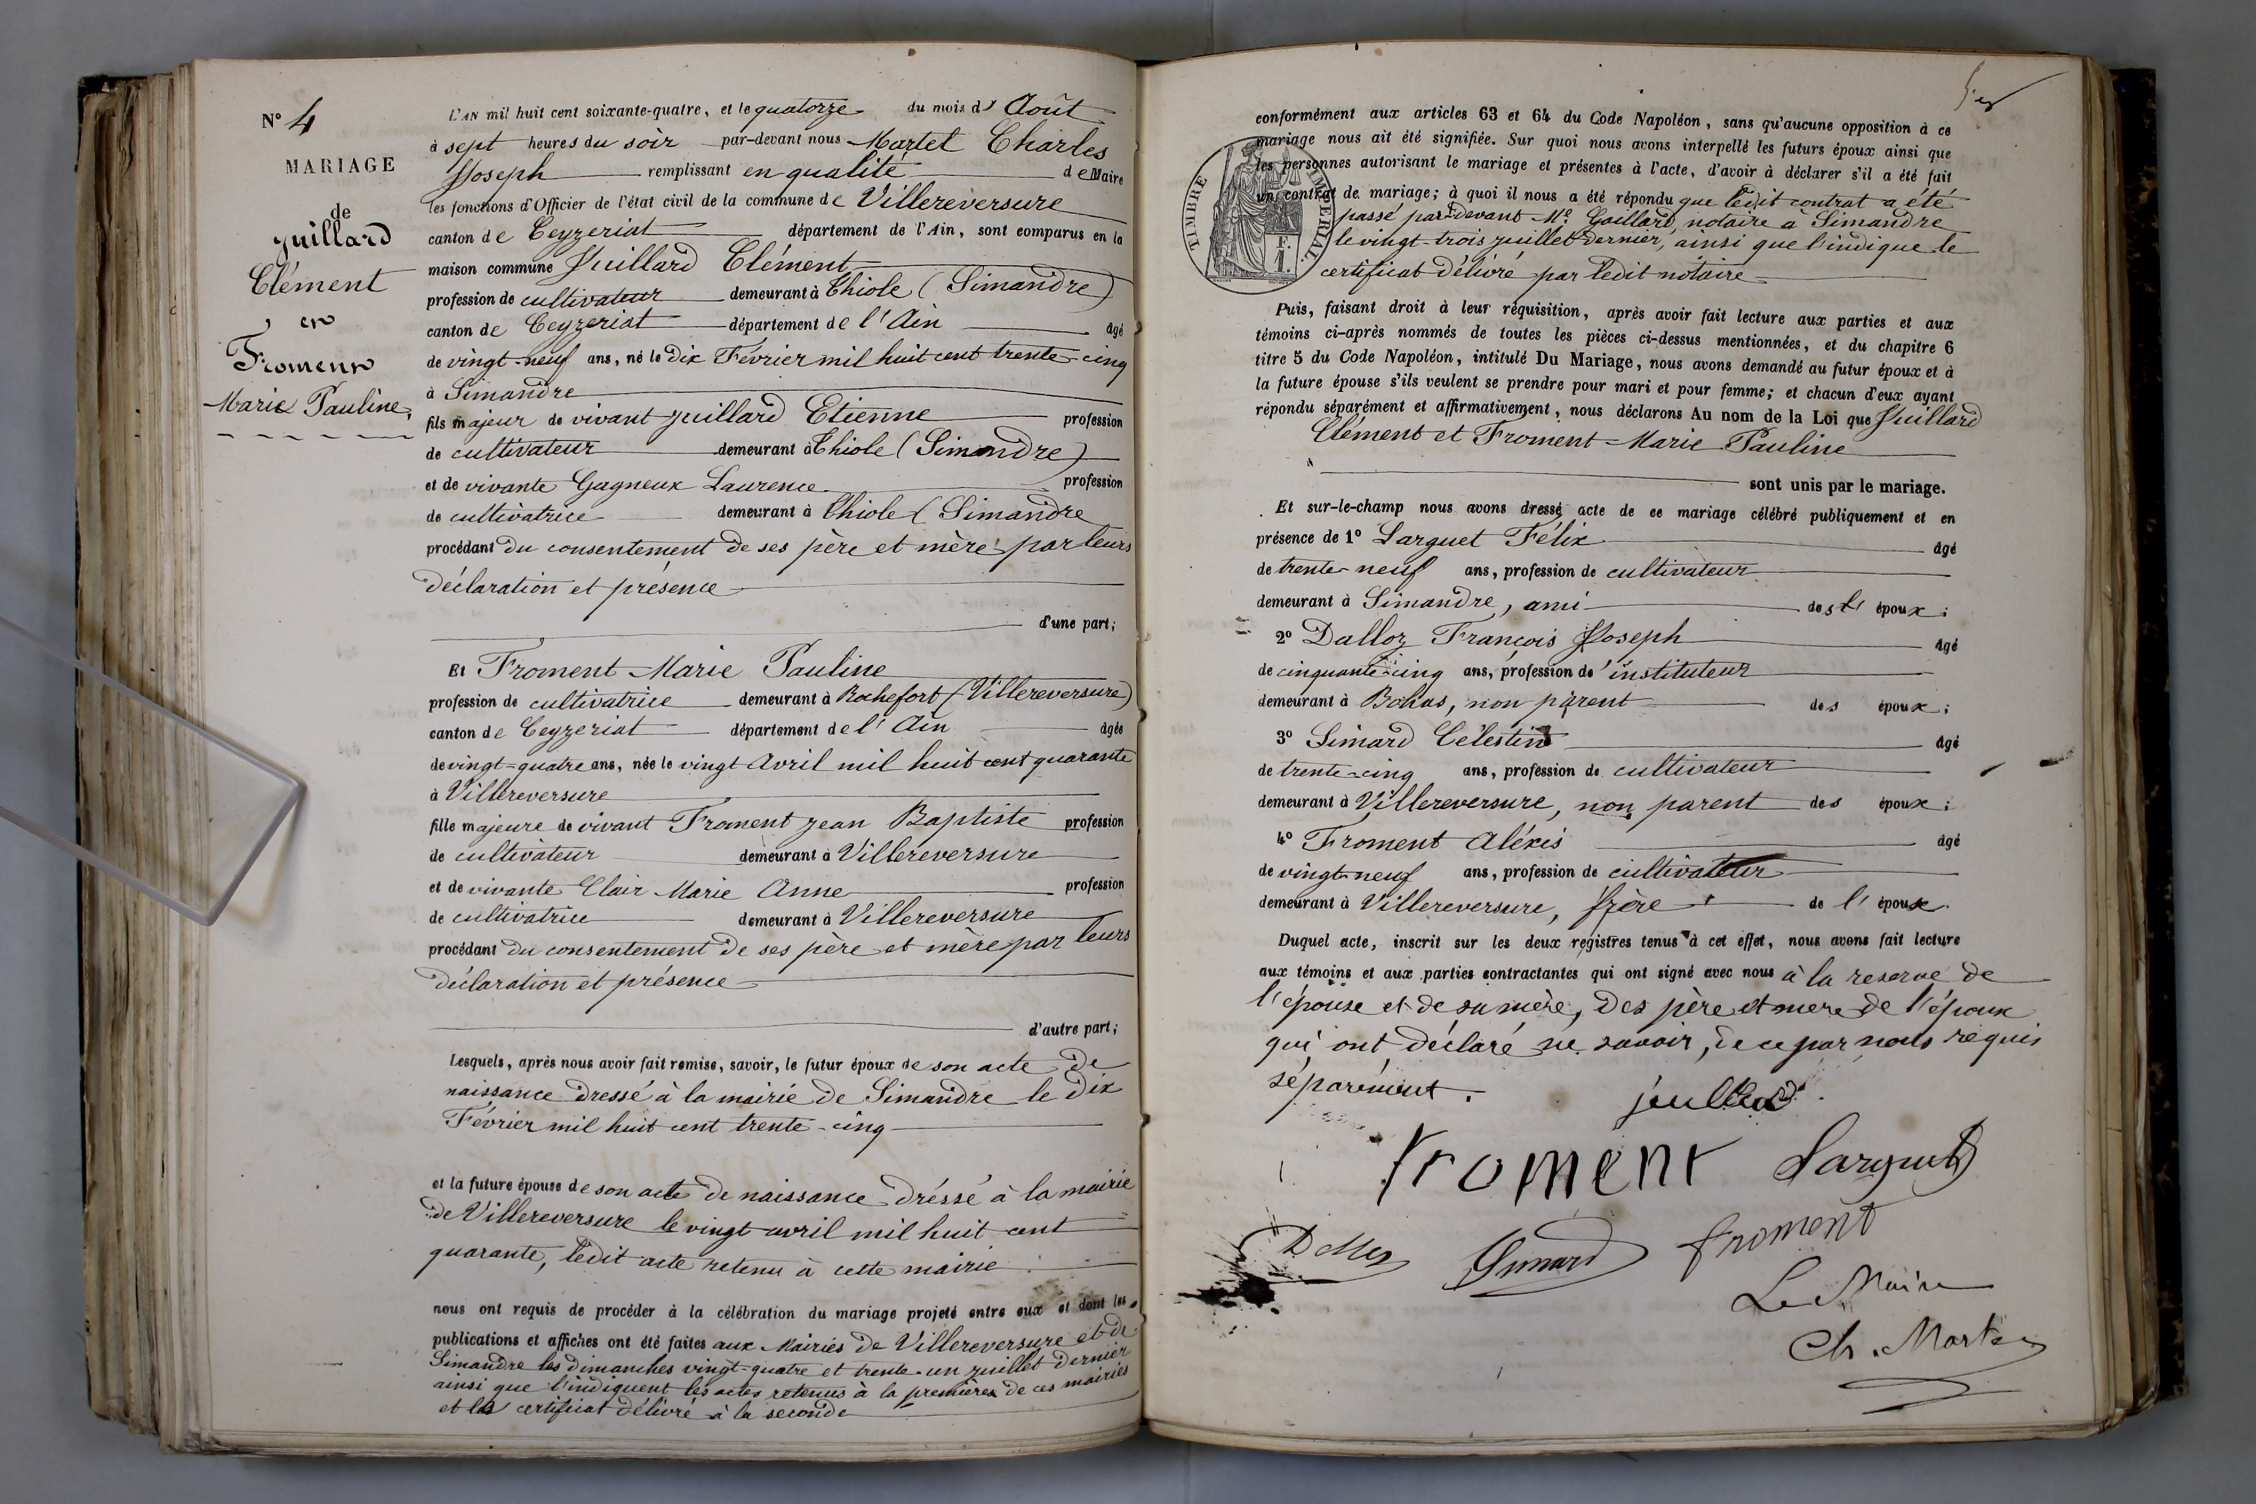 N° 4
MARIAGE
de
Juillard
Clément
et
Froment
Marie Pauline,
L'AN mil huit cent soixante-quatre, et le quatorze du mois d' Août
à sept heures du soir par-devant nous Martet Charles
Joseph remplissant en qualité de Maire
les fonctions d'Officier de l'état civil de la commune de Villereversure
canton de Ceyzeriat département de l'Ain, sont comparus en la
maison commune Juillard Clément
profession de cultivateur demeurant à Thiole (Simandre)
canton de Ceyzeriat département de l'Ain âgé
de vingt-neuf ans, né le dix Février mil huit cent trente-cinq
à Simandre
fils majeur de vivant Juillard Etienne profession
de cultivateur demeurant à Thiole (Simandre)
et de vivante Gagneux Laurence profession
de cultivatrice demeurant à Thiole (Simandre
procédant du consentement de ses père et mère par leurs
déclaration et présence
d'une part;
Et Froment Marie Pauline
profession de cultivatrice demeurant à Rochefort (Villereversure)
canton de Ceyzeriat département de l'Ain âgée
de vingt-quatre ans, née le vingt Avril mil huit cent quarante
à Villereversure
fille majeure de vivant Froment Jean Baptiste profession
de cultivateur demeurant à Villereversure
et de vivante Clair Marie Anne profession
de cultivatrice demeurant à Villereversure
procédant du consentement de ses père et mère par leurs
déclaration et présence
d'autre part;
Lesquels, après nous avoir fait remise, savoir, le futur époux de son acte de
naissance dressé à la mairie de Simandre le dix
Février mil huit cent trente-cinq
et la future épouse de son acte de naissance dréssé à la mairie
de Villereversure le vingt avril mil huit cent
quarante, ledit acte retenu à cette mairie
nous ont requis de procéder à la célébration du mariage projeté entre eux et dont les
publications et affiches ont été faites aux Mairies de Villereversure et de
Simandre les dimanches vingt-quatre et trente-un juillet dernier
ainsi que l'indiquent les actes retenus à la première de ces mairies
et le certificat délivré à la seconde
conformément aux articles 63 et 64 du Code Napoléon, sans qu'aucune opposition à ce
mariage nous ait été signifiée. Sur quoi nous avons interpellé les futurs époux ainsi que
les personnes autorisant le mariage et présentes à l'acte, d'avoir à déclarer s'il a été fait
un contrat de mariage; à quoi il nous a été répondu que ledit contrat a été
passé par-devant Me. Gaillard, notaire à Simandre
le vingt-trois juillet dernier, ainsi que l'indique le
certificat délivré par ledit notaire
TIMBRE IMPÉRIAL.
F.
1.
Puis, faisant droit à leur réquisition, après avoir fait lecture aux parties et aux
témoins ci-après nommés de toutes les pièces ci-dessus mentionnées, et du chapitre 6
titre 5 du Code Napoléon, intitulé Du Mariage, nous avons demandé au futur époux et à
la future épouse s'ils veulent se prendre pour mari et pour femme; et chacun d'eux ayant
répondu séparément et affirmativement, nous déclarons Au nom de la Loi que Juillard
Clément et Froment Marie Pauline
sont unis par le mariage.
Et sur-le-champ nous avons dressé acte de ce mariage célébré publiquement et en
présence de 1° Larguet Félix âgé
de trente-neuf ans, profession de cultivateur
demeurant à Simandre, ami de l' époux;
2° Dalloz François Joseph âgé
de cinquante-cinq ans, profession de instituteur
demeurant à Bohas, non parent des époux;
3° Simard Célestin âgé
de trente-cinq ans, profession de cultivateur
demeurant à Villereversure, non parent des époux;
4° Froment Aléxis âgé
de vingt-neuf ans, profession de cultivateur
demeurant à Villereversure, frère de l' épouse.
Duquel acte, inscrit sur les deux registres tenus à cet effet, nous avons fait lecture
aux témoins et aux parties contractantes qui ont signé avec nous à la reserve de
l'épouse et de sa mère, des père et mere de l'époux
qui ont déclaré ne savoir, de ce par nous requis
séparément.
juillard
froment Larguet
Dalloz Simard froment
Le Maire
Ch. Martet